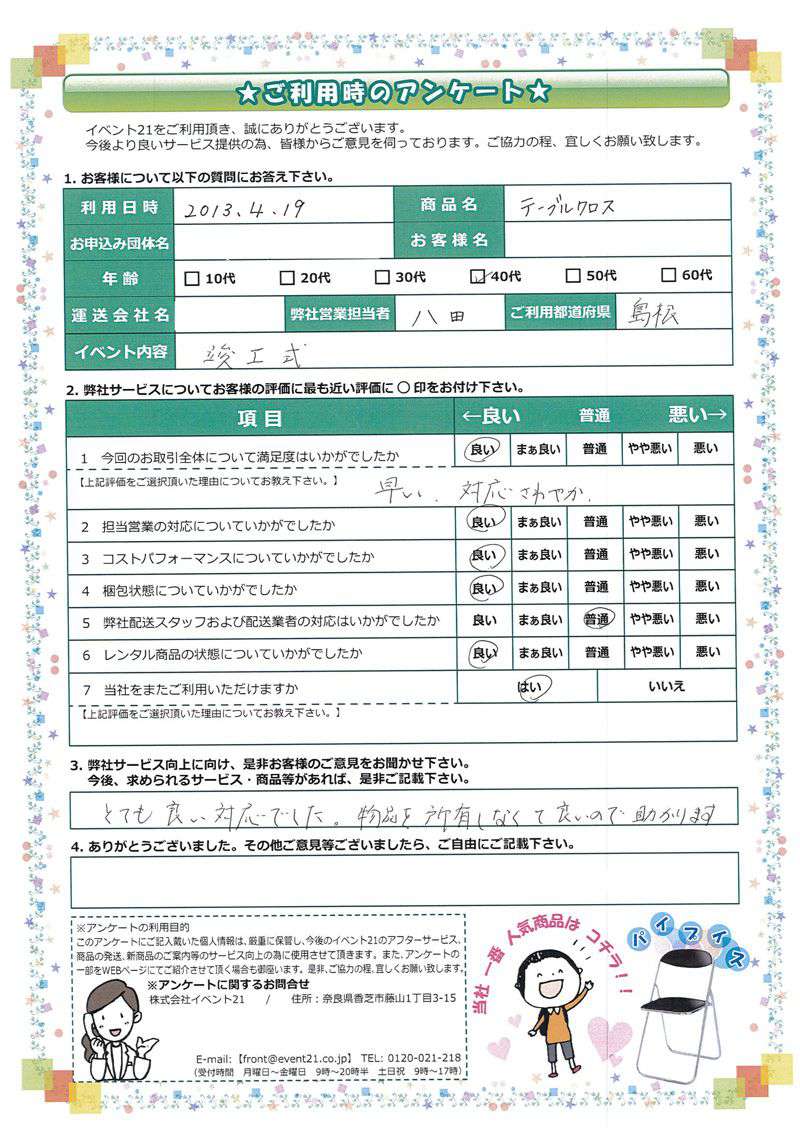 ★ご利用時のアンケート★
イベント21をご利用頂き、誠にありがとうございます。
今後より良いサービス提供の為、皆様からご意見を伺っております。ご協力の程、宜しくお願い致します。
1. お客様について以下の質問にお答え下さい。
利用日時 2013.4.19 商品名 テーブルクロス
お申込み団体名 お客様名
年齢 10代 20代 30代 40代 50代 60代
運送会社名 弊社営業担当者 八田 ご利用都道府県 島松
イベント内容 竣工式
2. 弊社サービスについてお客様の評価に最も近い評価に ○ 印をお付け下さい。
項目 ←良い 普通 悪い→
1 今回のお取引全体について満足度はいかがでしたか 良い まぁ良い 普通 やや悪い 悪い
【上記評価をご選択頂いた理由についてお教え下さい。】
早い、対応さわやか.
2 担当営業の対応についていかがでしたか 良い まぁ良い 普通 やや悪い 悪い
3 コストパフォーマンスについていかがでしたか 良い まぁ良い 普通 やや悪い 悪い
4 梱包状態についていかがでしたか 良い まぁ良い 普通 やや悪い 悪い
5 弊社配送スタッフおよび配送業者の対応はいかがでしたか 良い まぁ良い 普通 やや悪い 悪い
6 レンタル商品の状態についていかがでしたか 良い まぁ良い 普通 やや悪い 悪い
7 当社をまたご利用いただけますか はい いいえ
【上記評価をご選択頂いた理由についてお教え下さい。】
3. 弊社サービス向上に向け、是非お客様のご意見をお聞かせ下さい。
今後、求められるサービス・商品等があれば、是非ご記載下さい。
とても良い対応でした。物品を所有しなくて良いので助かります
4. ありがとうございました。その他ご意見等ございましたら、ご自由にご記載下さい。
※アンケートの利用目的
このアンケートにご記入戴いた個人情報は、厳重に保管し、今後のイベント21のアフターサービス、
商品の発送、新商品のご案内等のサービス向上の為に使用させて頂きます。また、アンケートの
一部をWEBページにてご紹介させて頂く場合も御座います。是非、ご協力の程、宜しくお願い致します。
※アンケートに関するお問合せ
株式会社イベント21 / 住所：奈良県香芝市藤山1丁目3-15
E-mail:【front@event21.co.jp】 TEL: 0120-021-218
(受付時間 月曜日～金曜日 9時～20時半 土日祝 9時～17時)
当社一番人気商品はコチラ!!
パイプイス